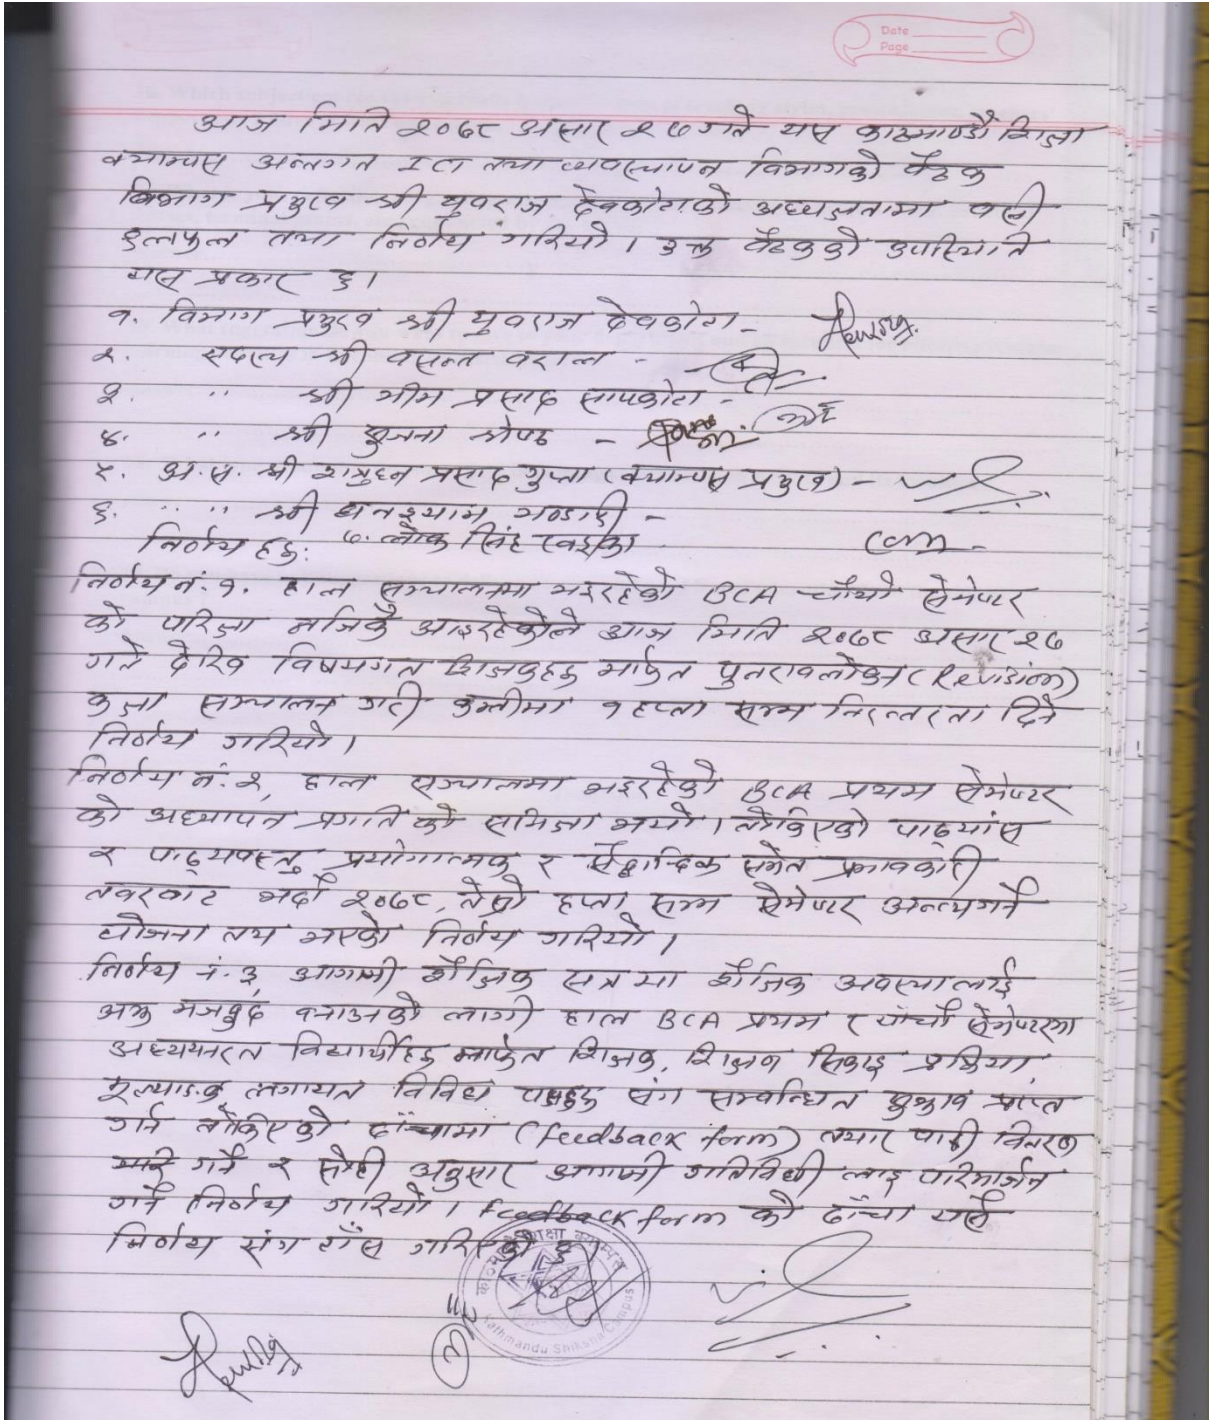 Date
Page
आज मिति २०७८ असार २७ गते यस काठमाण्डौ शिक्षा
क्याम्पस अन्तगत ICT तथा व्यवस्थापन विभागको बैठक
विभाग प्रमुख श्री युवराज देवकोटाको अध्यक्षतामा बसी
छलफल तथा निर्णय गरियो । उक्त बैठकको उपस्थिति
यस प्रकार छ ।
१. विभाग प्रमुख श्री युवराज देवकोटा -
२. सदस्य श्री वसन्त वराल -
३. " श्री भीम प्रसाद सापकोटा -
४. " श्री सुजना श्रेष्ठ -
५. अ.स. श्री शत्रुघ्न प्रसाद गुप्ता (क्याम्पस प्रमुख) -
६. " " श्री घनश्याम भण्डारी -
निर्णय हरु: ७. लोक सिंह खड्का
निर्णय नं. १. हाल सञ्चालनमा भइरहेको BCA चौथो सेमेष्टर
को परिक्षा नजिकै आइरहेकोले आज मिति २०७८ असार २७
गते देखि विषयगत शिक्षकहरु मार्फत पुनरावलोकन (Revision)
कक्षा सञ्चालन गरी कम्तीमा १ हप्ता सम्म निरन्तरता दिने
निर्णय गरियो ।
निर्णय नं. २, हाल सञ्चालमा भइरहेको BCA प्रथम सेमेष्टर
को अध्यापन प्रगति को समिक्षा भयो । तोकिएको पाठ्यांस
र पाठ्यवस्तु प्रयोगात्मक र सैद्धान्दिक समेत प्रभावकारी
तवरवाट भदौ २०७८, तेस्रो हप्ता सम्म सेमेष्टर अन्त्य गर्ने
योजना तय भएको निर्णय गरियो ।
निर्णय नं. ३, आगामी शैक्षिक सत्र मा शैक्षिक अवस्थालाई
अझ मजबुद बनाउनको लागी हाल BCA प्रथम र चौथौ सेमेष्टरमा
अध्ययनरत विद्यार्थीहरु मार्फत शिक्षक, शिक्षण सिकाइ प्रक्रिया,
मूल्याङ्कन लगायत विविध पक्षहरु संग सम्वन्धित सुझाव प्राप्त
गर्न तोकिएको ढाँचामा (feedback form) तयार पारी वितरण
गर्ने र सोही अनुसार आगामी गतिविधी लाइ परिमार्जन
गर्ने निर्णय गरियो । feedback form को ढाँचा यसै
निर्णय संग टाँस गरिएको छ ।
Kathmandu Shiksha Campus